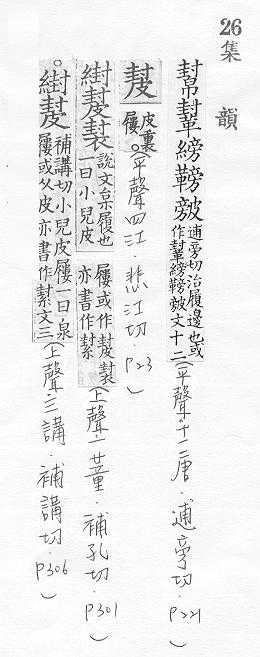 26 集 韻
幫縍鞤逋旁切治履邊也或作縍鞤文十二(平聲十一唐．逋旁切．P221)
皮裏屨。平聲四江．悲江切．P23)
說文枲履也一曰小兒皮屨或作亦書作(上聲一董．補孔切．P301)
。補講切小兒皮屨一曰枲屨或从皮亦書作文三(上聲三講．補講切．P306)